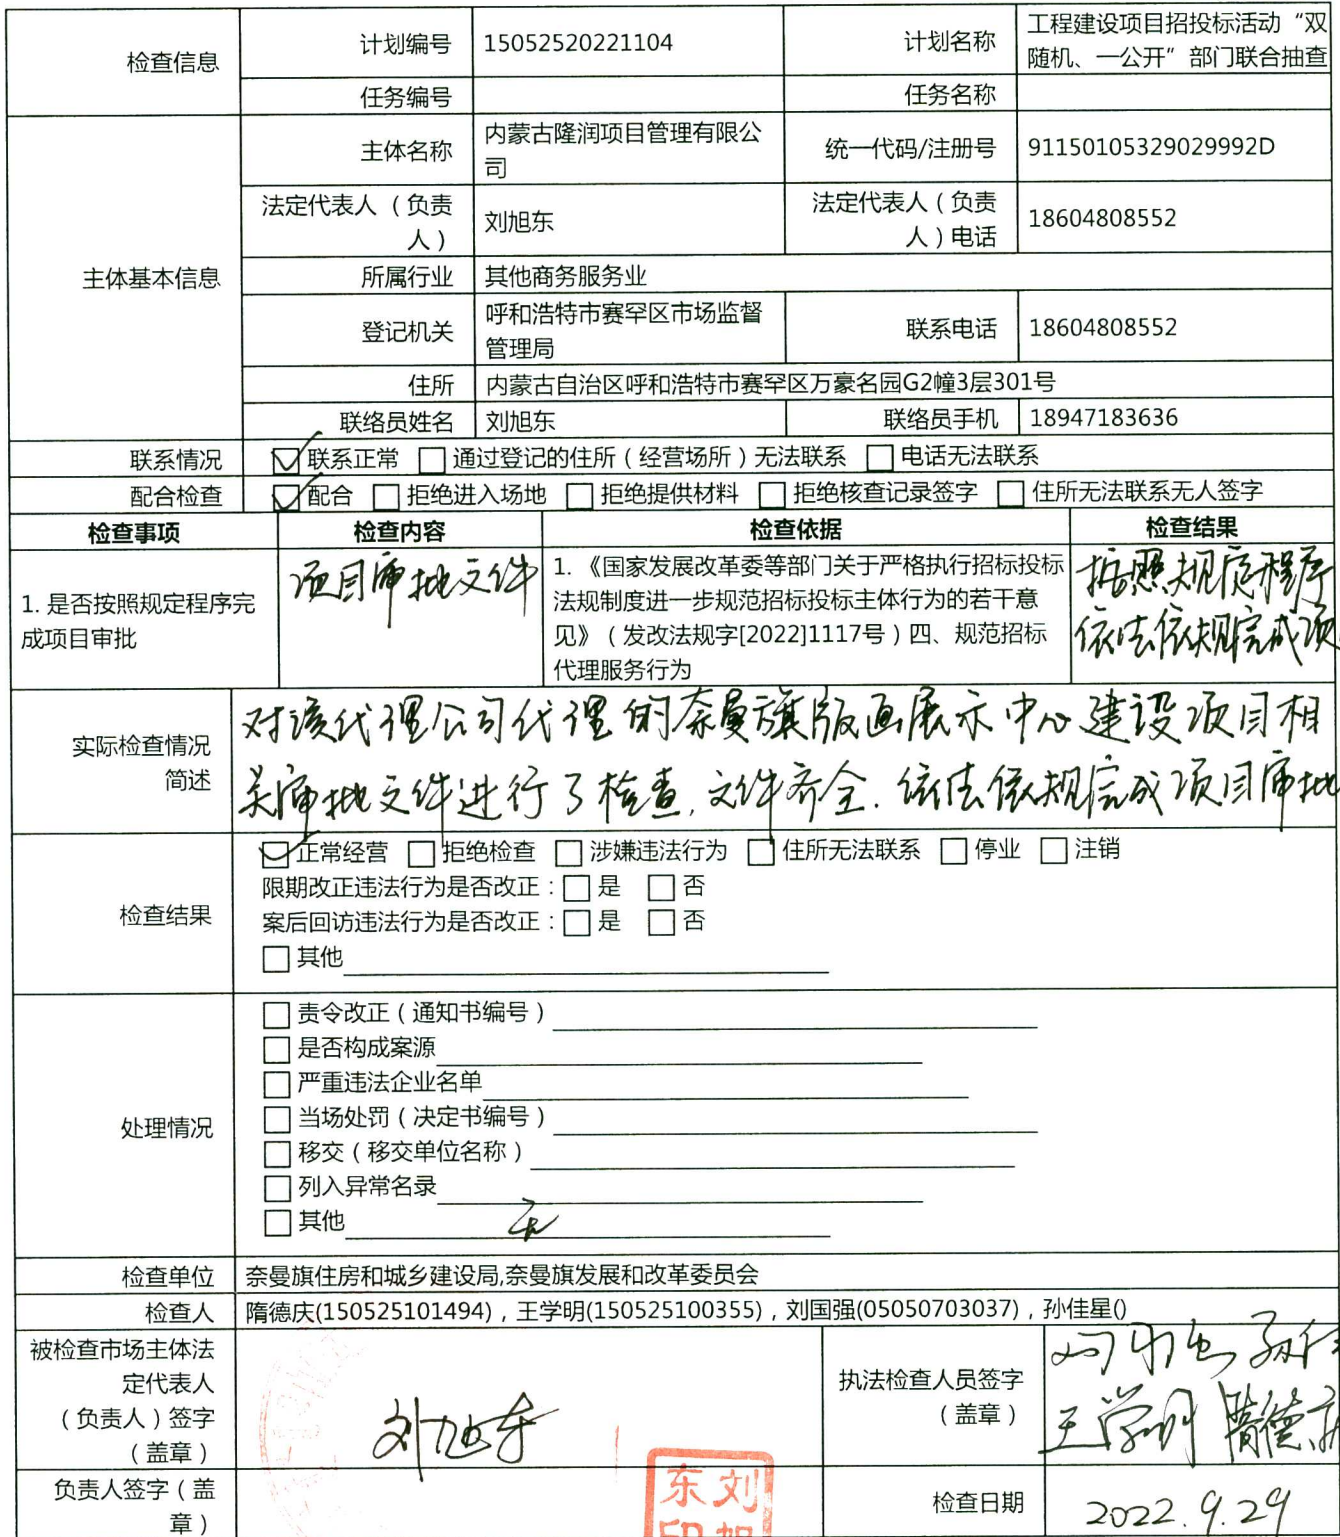 检查信息 计划编号 15052520221104 计划名称 工程建设项目招投标活动“双
随机、一公开”部门联合抽查
任务编号 任务名称
主体基本信息 主体名称 内蒙古隆润项目管理有限公
司 统一代码/注册号 91150105329029992D
法定代表人（负责
人） 刘旭东 法定代表人（负责
人）电话 18604808552
所属行业 其他商务服务业
登记机关 呼和浩特市赛罕区市场监督
管理局 联系电话 18604808552
住所 内蒙古自治区呼和浩特市赛罕区万豪名园G2幢3层301号
联络员姓名 刘旭东 联络员手机 18947183636
联系情况 联系正常 通过登记的住所（经营场所）无法联系 电话无法联系
配合检查 配合 拒绝进入场地 拒绝提供材料 拒绝核查记录签字 住所无法联系无人签字
检查事项 检查内容 检查依据 检查结果
1. 是否按照规定程序完
成项目审批
项目审批文件
1. 《国家发展改革委等部门关于严格执行招标投标
法规制度进一步规范招标投标主体行为的若干意
见》（发改法规字[2022]1117号）四、规范招标
代理服务行为
按照规定程序
依法依规完成项
实际检查情况
简述
对该代理公司代理的奈曼旗版画展示中心建设项目相
关审批文件进行了检查,文件齐全.依法依规完成项目审批
检查结果
正常经营 拒绝检查 涉嫌违法行为 住所无法联系 停业 注销
限期改正违法行为是否改正： 是 否
案后回访违法行为是否改正： 是 否
其他
处理情况
责令改正（通知书编号）
是否构成案源
严重违法企业名单
当场处罚（决定书编号）
移交（移交单位名称）
列入异常名录
其他 无
检查单位 奈曼旗住房和城乡建设局,奈曼旗发展和改革委员会
检查人 隋德庆(150525101494)，王学明(150525100355)，刘国强(05050703037)，孙佳星()
被检查市场主体法
定代表人
（负责人）签字
（盖章）
刘旭东
执法检查人员签字
（盖章）
孙佳
王学明 隋德庆
负责人签字（盖
章）
东刘
印旭
检查日期 2022.9.29